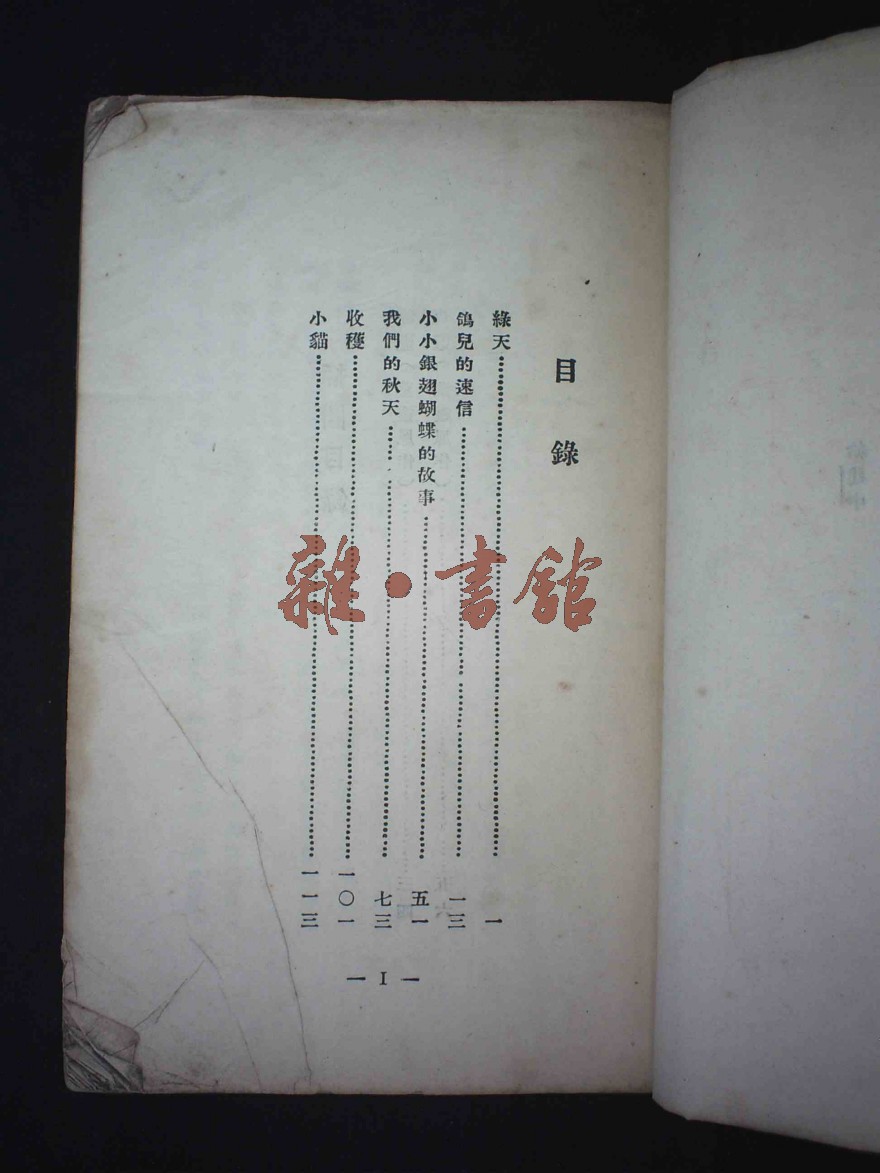 目錄
綠天……一
鴿兒的速信……一三
小小銀翅蝴蝶的故事……五一
我們的秋天……七三
收穫……一〇一
小貓……一一三
— I —
雜・書館